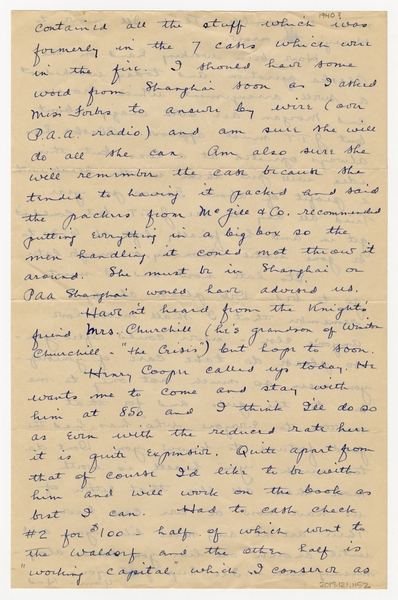 1940?
contained all the stuff which was
formerly in the 7 cases which were
in the fire. I should have some
word from Shanghai soon as I asked
Miss Forbes to answer by wire (over
P.A.A. radio) and am sure she will
do all she can. Am also sure she
will remember the case because she
tended to having it packed and said
the packers from McGill & Co. recommended
putting everything in a big box so the
men handling it could not throw it
around. She must be in Shanghai or
PAA Shanghai would have advised us.
Haven't heard from the Knights'
friend Mrs. Churchill (he's grandson of Winston
Churchill - "The Crisis") but hope to soon.
Henry Cooper called up today. He
wants me to come and stay with
him at 850 and I think I'll do so
as even with the reduced rate here
it is quite expensive. Quite apart from
that of course I'd like to be with
him and will work on the book as
best I can. Had to cash check
#2 for $100 - half of which went to
the Waldorf and the other half is
"working capital" which I conserve as
2013.121.1152